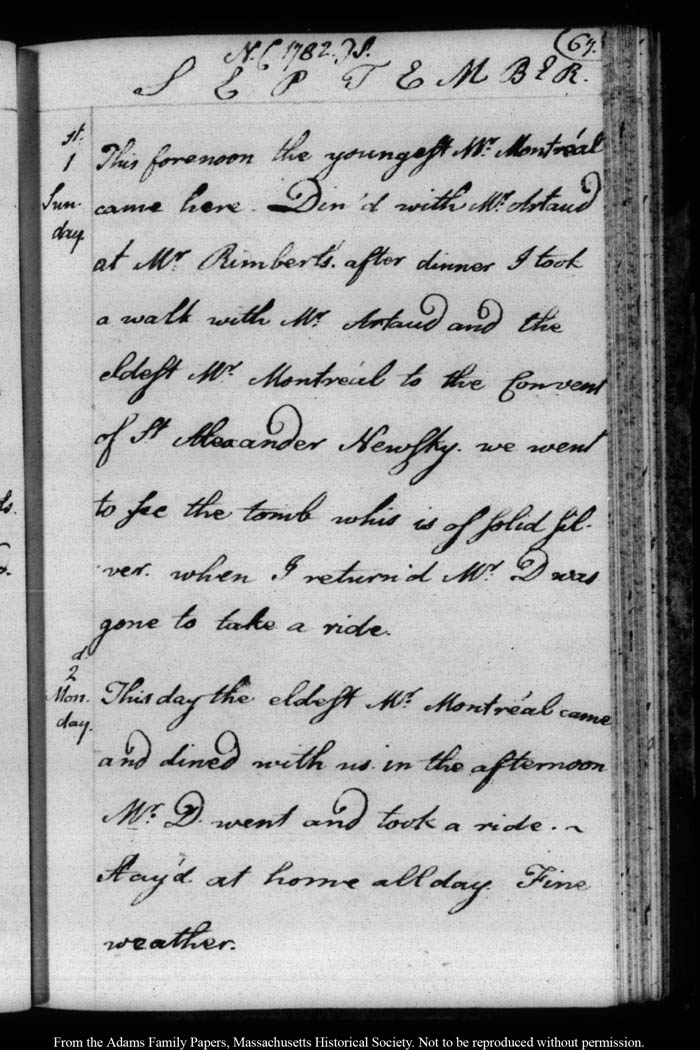 N.S. 1782.
67.
SEPTEMBER.
st.
1
Sun-
day.
This forenoon the youngest Mr. Montréal
came here. Din'd with Mr. Artaud
at Mr. Rimbert's. after dinner I took
a walk with Mr. Artaud and the
eldest Mr. Montréal to the Convent
of St. Alexander Newsky. we went
to see the tomb whis is of solid sil-
ver. when I return'd Mr. D was
gone to take a ride.
d.
2
Mon.
day.
This day the eldest Mr. Montréal came
and dined with us. in the afternoon
Mr. D. went and took a ride. ~
Stay'd at home all day. Fine
weather.
From the Adams Family Papers, Massachusetts Historical Society. Not to be reproduced without permission.